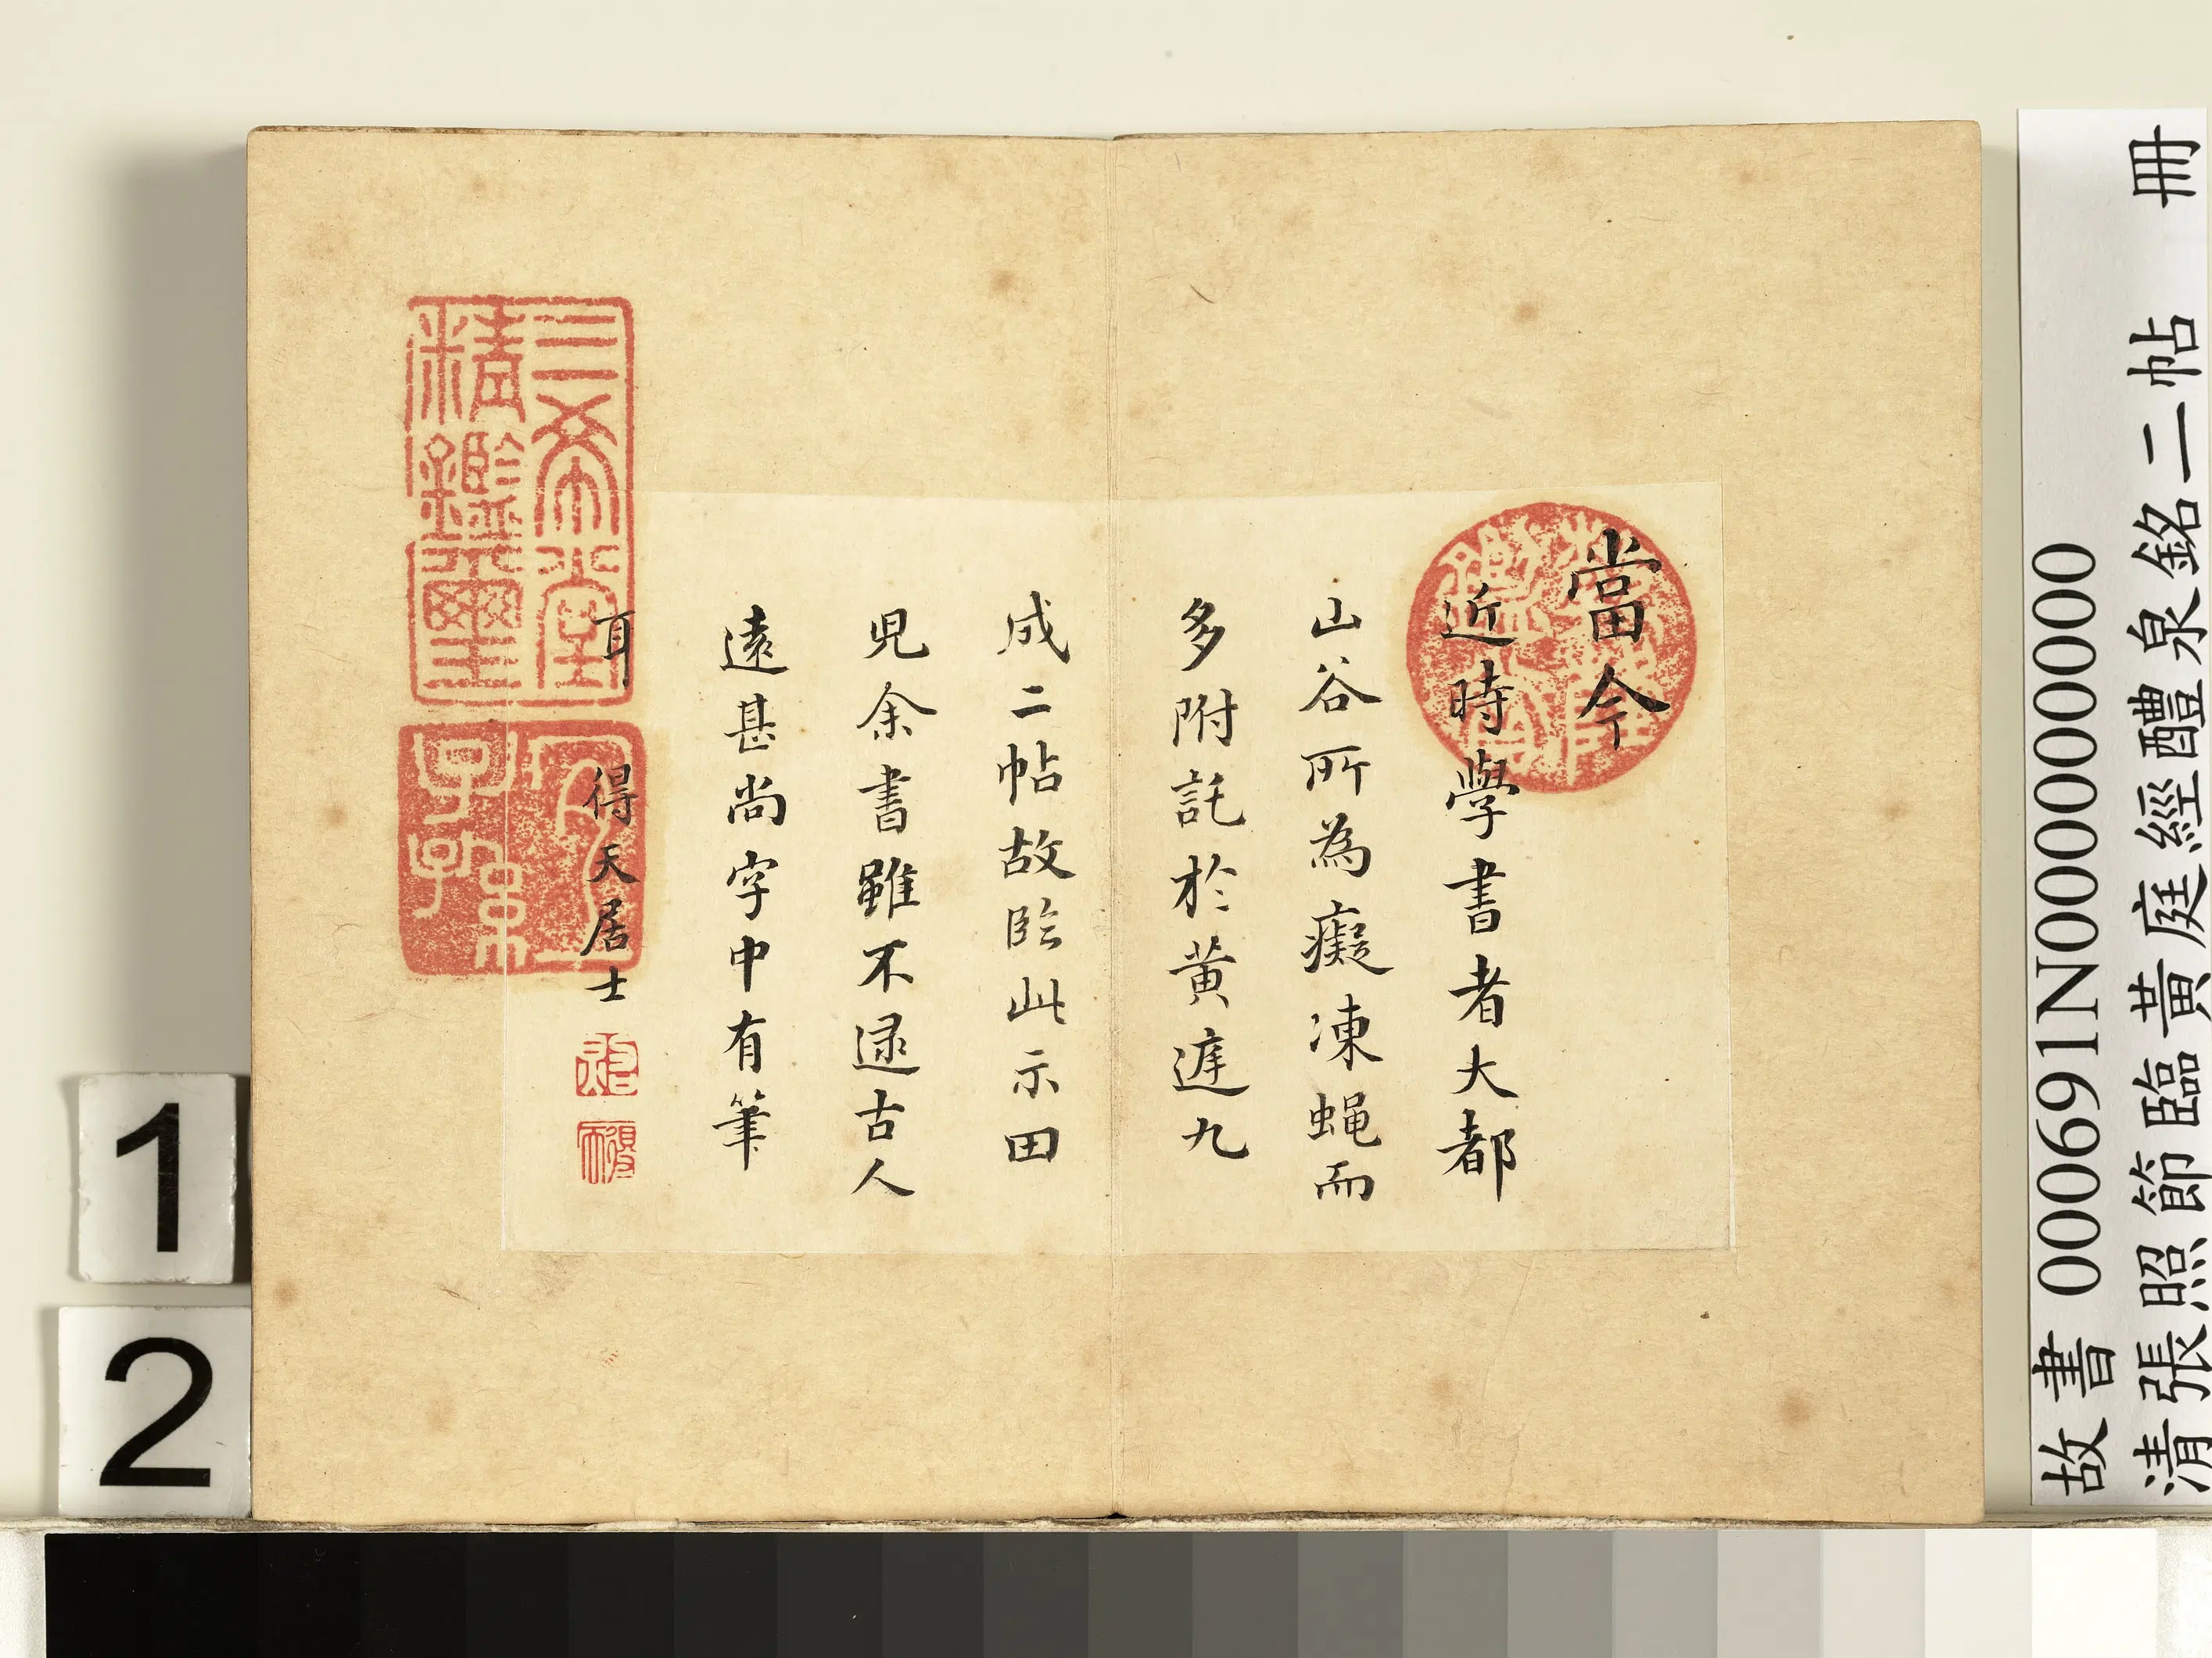 故書 000691N000000000
清張照節臨黃庭經醴泉銘二帖 冊
當今
近時學書者大都
山谷所為癡凍蝇而
多附託於黃遅九
成二帖故臨此示田
児余書雖不逮古人
遠甚尚字中有筆
耳 得天居士
三希堂
精鑑璽
宜
子孫
1
2